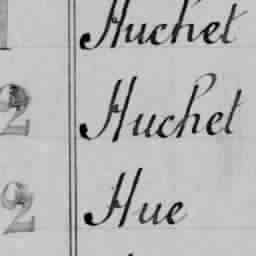 Huchet
2 Huchet
2 Hue